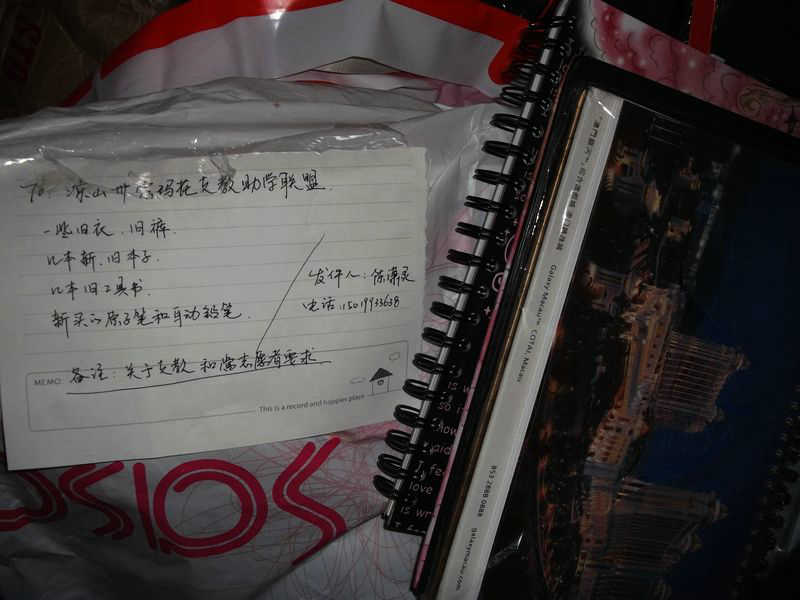 To: 凉山州索玛花支教助学联盟
一些旧衣、旧裤.
几本新、旧本子
几本旧工具书.
新买的原子笔和自动铅笔.
发件人:
电话:
备注: 关于支教 和 志愿者要求
MEMO:
This is a record and happier place
Galaxy Macau™ COTAI, Macau
853 2888 0888
galaxymacau.com
is w
so i
love
is wr